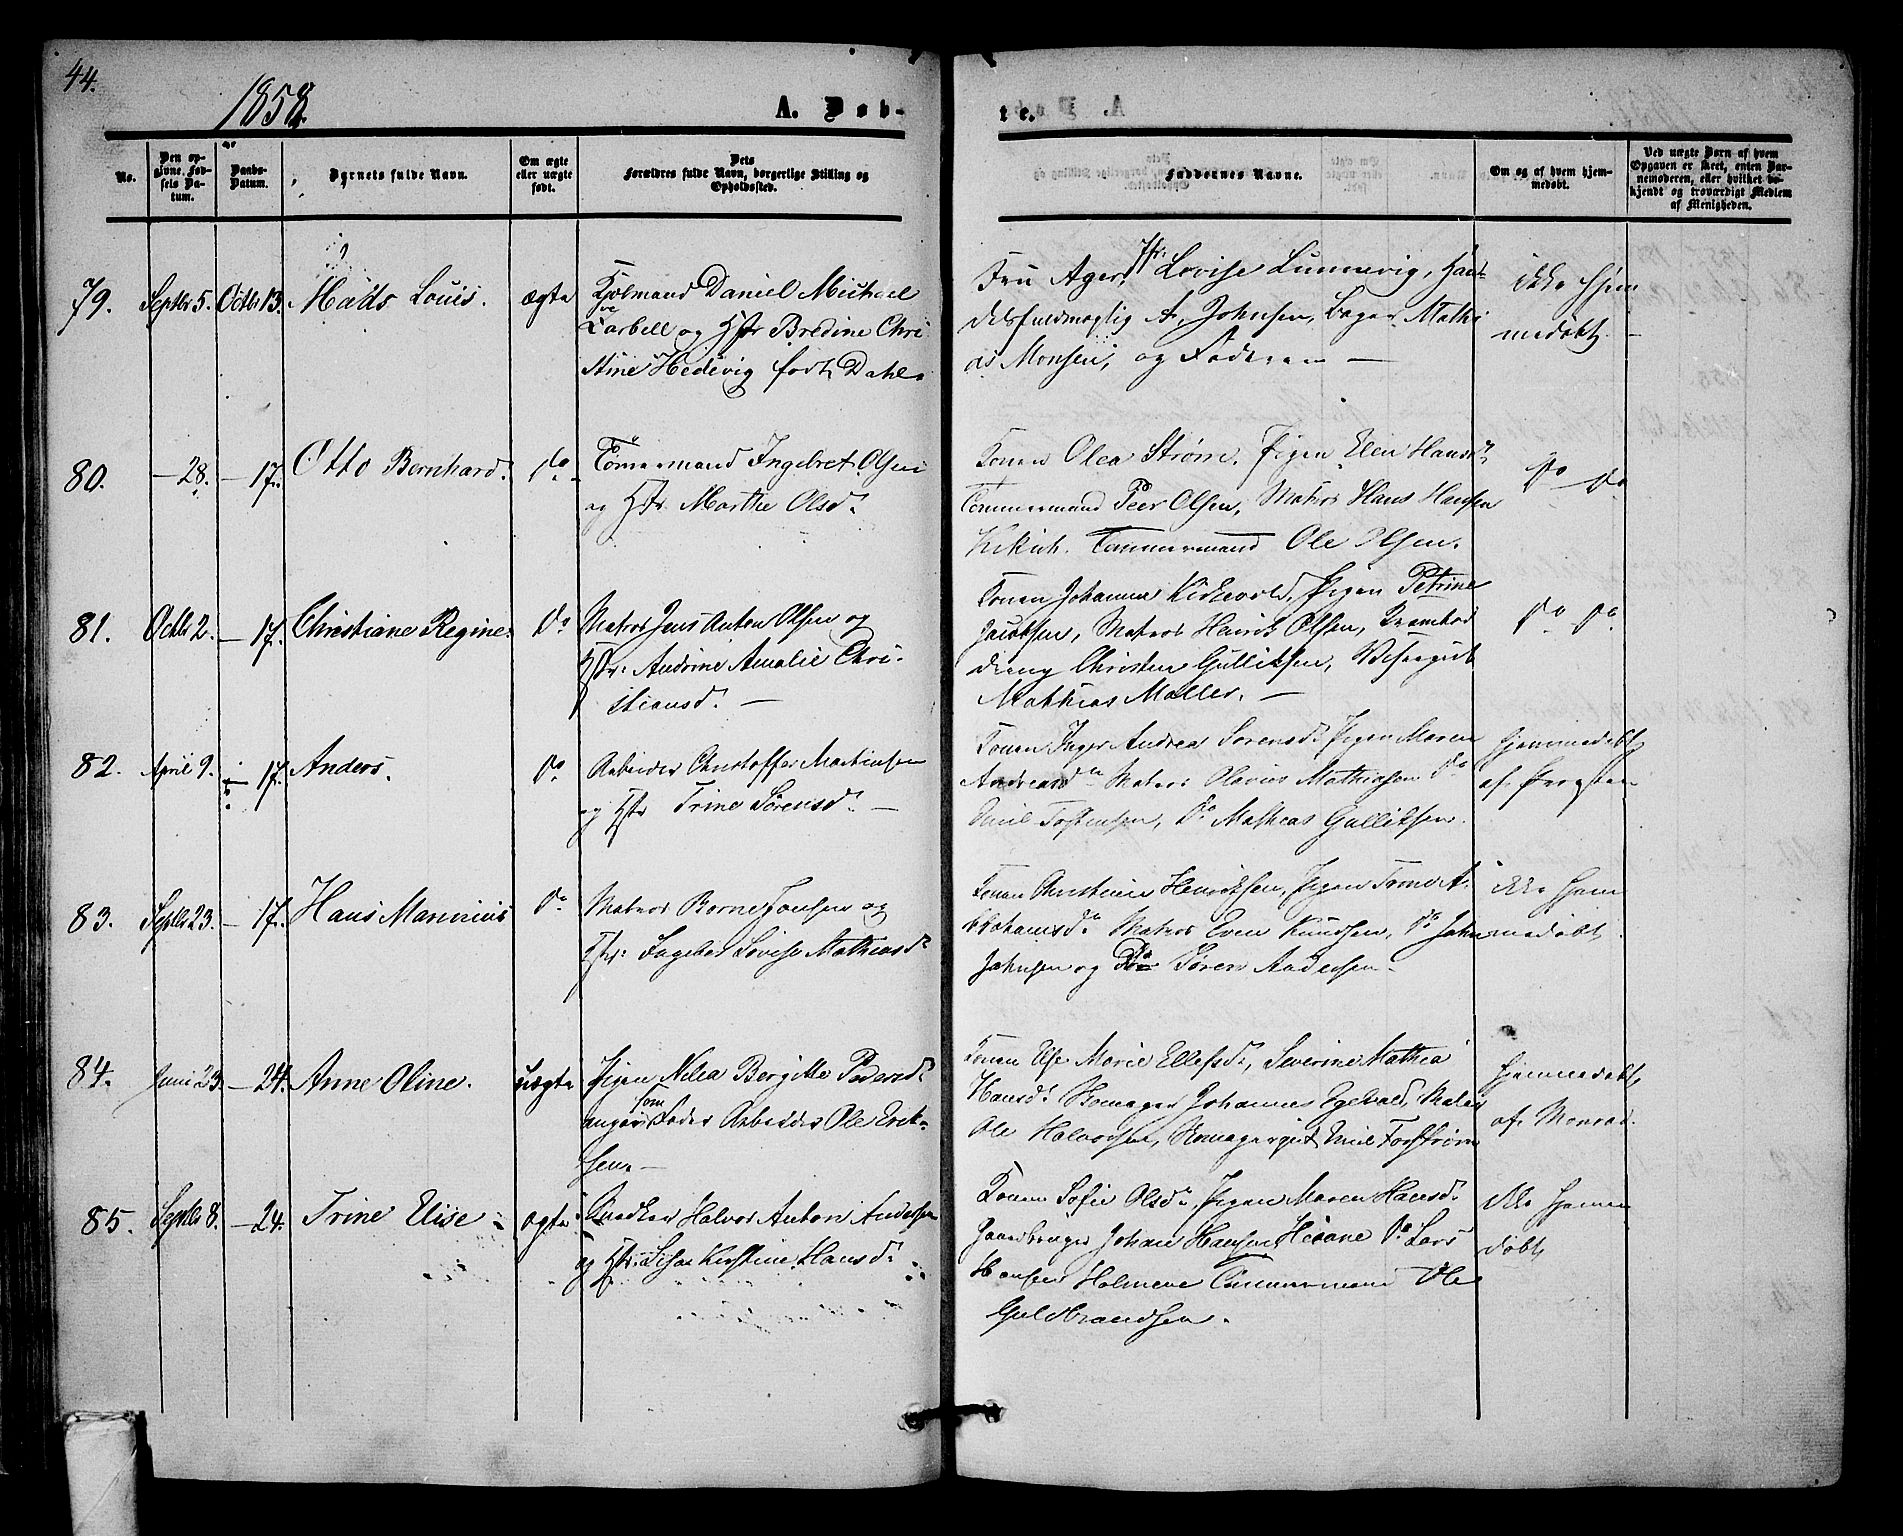 44.
1858.
A. Døb-
te.
No.
Den op-
givne Fød-
sels Da-
tum.
Daabs-
Datum.
Barnets fulde Navn.
Om ægte
eller uægte
født.
Dets
Forældres fulde Navn, borgerlige Stilling og
Opholdssted.
Faddernes Navne.
Om og af hvem hjem-
medøbt.
Ved uægte Børn af hvem
Opgaven er skeet, enten Bar-
nemoderen, eller hvilket be-
kjendt og troværdigt Medlem
af Menigheden.
79. Septbr 5. Octbr 13. Mads Louis. ægte
Daniel Michael
og Hstr Bredine Chri
stine Hedevig født Dahl.
Fru Agers, Lovise Lunnevig, Han-
delsfuldmægtig A. Johnsen, Bager Mathi
as Monsen, og Faderen —
ikke hjem
medøbt. —
80. — 28. — 17. Otto Bernhard. do
Tømmermand Ingebret Olsen
og Hstr Marthe Olsdr.
Konen Olea Strøm. Pigen Elen Hansdr,
Tømmermand Peer Olsen, Matros Hans Hansen
Tømmermand Ole Olsen.
do do
81. Octbr 2. — 17. Christiane Regine. do
Matros Jens Anton Olsen og
Hstr. Andrine Amalie Chri-
stiansdr. —
Konen Johanne Pigen Petrine
Jacobsen, Matros Henrik Olsen,
dreng Christen Gulliksen,
Mathias Møller. —
do do
82. April 9. — 17. Anders. do
Arbeider Christoffer Martinsen
og Hstr Trine Sørensdr. —
Konen Inger Andrea Sørensdr Pigen Maren
Andreasdr Matros Olavus Mathiasen do
Emil Tostensen, do Mathias Gulliksen.
hjemmedøbt
af Præsten
83. Septbr 23. — 17. Hans Marinius do
Matros Torsen og
Hstr. Ingeborg Lovise Mathiasdr
Konen Christine Henriksen, Pigen Trine A-
brahamsdr Matros Even Knudsen, do John
Johnsen og do Søren Andersen.
ikke hjem
medøbt.
84. Juni 23. — 24. Anne Oline. uægte
Pigen Nilea Bergitte Pedersdr
angav som Fader Arbeider Ole Erik-
sen. —
Konen Else Marie Ellefsdr, Severine Mathea
Hansdr Skomager Johannes Matros
Ole Halvorsen, Skomagergut Emil Forstrøm
hjemmedøbt
af Monrad.
85. Septbr 8. — 24. Trine Elise. ægte
Halvor Anton Andersen
og Hstr. Kirstine Hansdr
Konen Sofie Olsdr, Pigen Maren Hansdr
Gaardbruger Johan Hansen do Lars
Hansen Holmene Tømmermand Ole
Guldbrandsen.
ikke hjemme
døbt